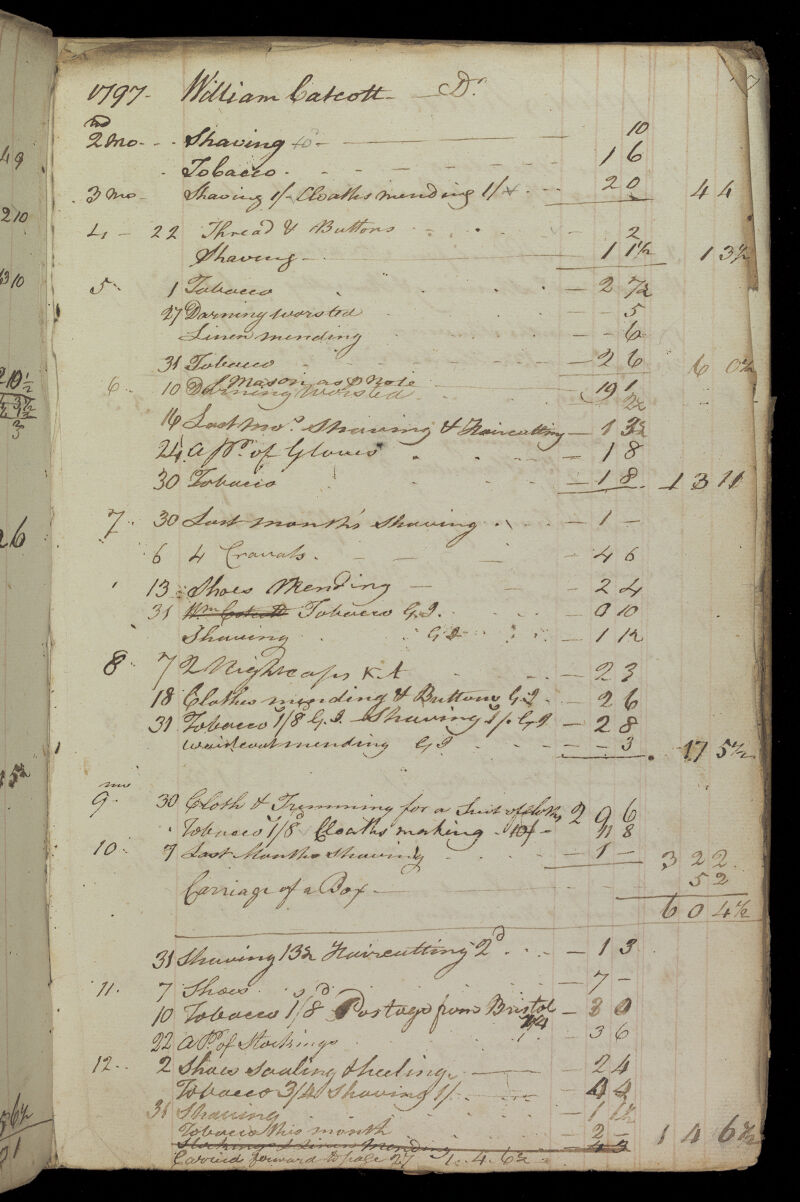 1797- William Catcott- Dr
2nd mo - - Shaving - 10
Tobacco - 1 6
3 mo - Shaving 1/- Cloaths mending 1/- 2 0 4 4
4 - 22 Thread & Buttons - 2
Shaving - 1 1½ 1 3½
5 1 Tobacco - 2 7½
27 Darning worsted - - 5
Linen mending - - 6
31 Tobacco - 2 6 6 0½
6 Mason as pr Note 19 1
10 Darning worsted 2½
16 Last Mos Shaving & Haircutting - 1 3½
24 A Pr of Gloves - 1 8
30 Tobacco - 1 8 1 3 11
7 30 Last month's Shaving - 1 -
6 4 Cravats - 4 6
13 Shoes Mending - 2 4
31 Wm Catcott Tobacco G.I. - 0 10
Shaving G I - 1 1½
8 7 2 Nightcaps K A - 2 3
18 Clothes mending & Buttons G.I. - 2 6
31 Tobacco 1/8 G.I. Shaving 1/- G I - 2 8
waistcoat mending G I - - 3 17 5½
9 mo 30 Cloth & Trimming for a Suit of cloths 2 9 6
Tobacco 1/8d Cloaths making 10/- 11 8
10 7 Last Months Shaving - 1 - 3 2 2
Carriage of a Box 5 2
6 0 4½
31 Shaving 13½ Haircutting 2d - 1 3
11 7 Shoes - 7 -
10 Tobacco 1s/8d Postage from Bristol 1/4 - 3 0
22 A Pr of Stockings - 3 6
12 2 Shoes soaling & heeling - 2 4
Tobacco 3/4 Shaving 1/ - 4 4
31 Shaving - 1 1½
Tobacco this month - 2 - 1 4 6½
Stockings & Linen Mending 4 3
Carried forward to page 27 1 . 4 . 6½
49
210
310
26